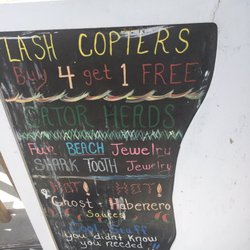 LASH COPTERS
Buy 4 get 1 FREE
GATOR HEADS
Fun BEACH Jewelry
SHARK TOOTH Jewelry
HOT! HOT!
Ghost + Habenero
Sauces
Stuff
you didn't Know
you needed